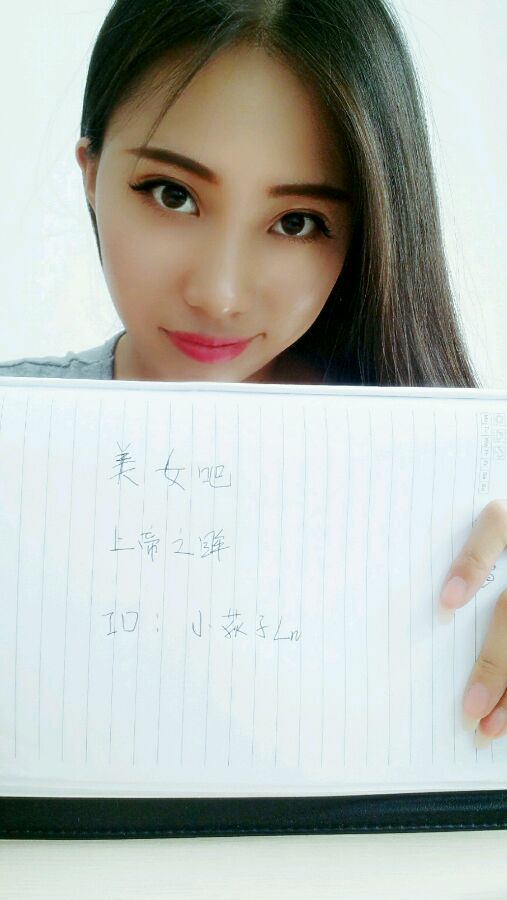 美女吧
上帝之眸
ID：小荻子Ln